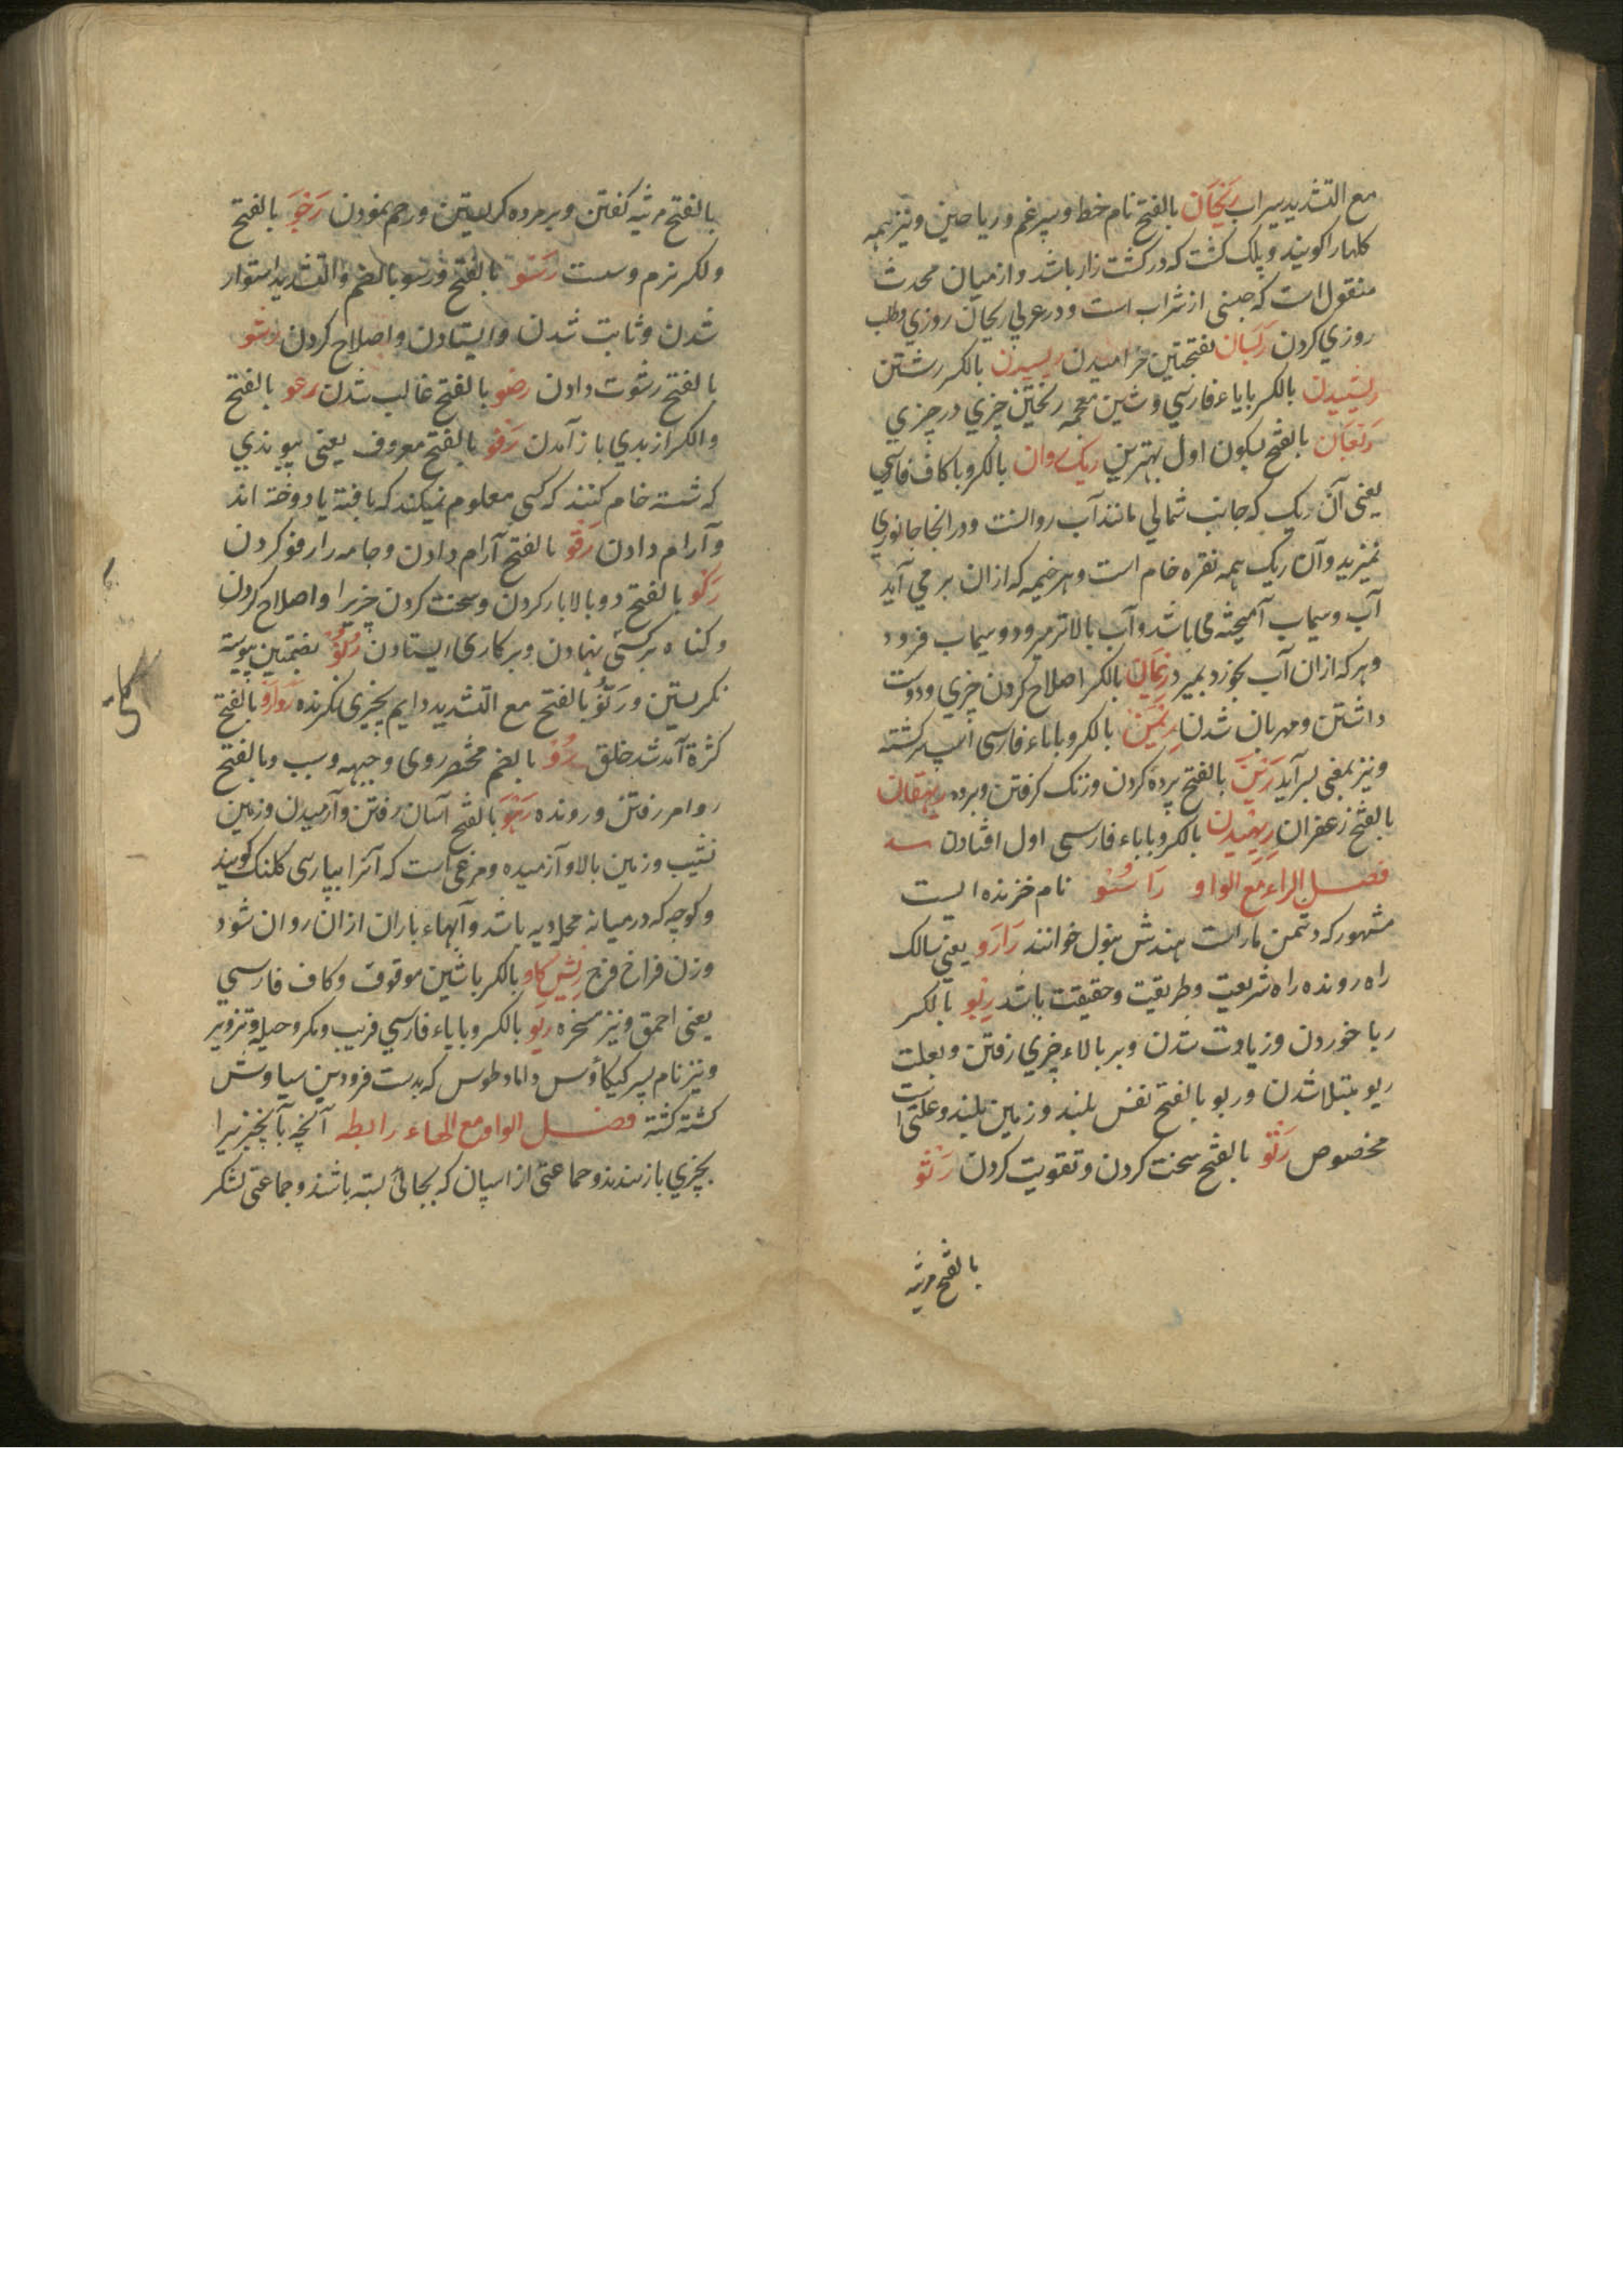 مع التشدید سیراب رَیْحَان بالفتح نام خط و سپرغم و ریاحین و نیز همه
کلها را کویند و پلک کشت که در کشت زار باشد و از میان محدث
منقول است که جنبی از شراب است و در عربی ریحان روزی و طلب
روزی کردن رَیَسَان بفتحتین خرامیدن ریسیدن بالکسر رشتن
ریشیدن بالکسر بایاء فارسی و شین معجمه ریختن چیزی در چیزی
رَیْعَان بالفتح بسکون اول بهترین ریک روان بالکسر و با کاف فارسی
یعنی آن ریک که جانب شمالی مانند آب روانست و در انجا جانوری
نمیزید و آن ریک همه نقره خام است و هر خیمه که ازان بر می آید
آب و سیماب آمیخته می باشد و آب بالاتر میرود و سیماب فرود
و هر که ازان آب بخورد بمیرد رِیمَان بالکسر اصلاح کردن چیزی و دوست
داشتن و مهربان شدن رِیمَن بالکسر و بایاء فارسی اسپ سرکشته
و نیز بمعنی بسر آید رَیْن بالفتح پرده کردن و زنک کرفتن و برده رَیْهقان
بالفتح زعفران رِیهیدن بالکسر و بایاء فارسی اول افتادن
فصل الراء مع الواو رَاسُو نام خزنده ایست
مشهور که دشمن مار است هندش نیول خوانند رَارَو یعنی سالک
راه رونده راه شریعت و طریقت و حقیقت باشد رِبو بالکسر
ربا خوردن و زیادت شدن و بر بالاء چیزی رفتن و بعلت
ربو مبتلا شدن و ربو بالفتح نفس بلند و زمین بلند و علتی است
مخصوص رَتْو بالفتح سخت کردن و تقویت کردن رَثْو
بالفتح مرثیه
بالفتح مرثیه کفتن و بر مرده کریستن و رحم نمودن رَخو بالفتح
والکسر نرم و سست رَسو بالفتح و رسو بالضم والتشدید استوار
شدن و ثابت شدن و ایستادن و اصلاح کردن رشو
بالفتح رشوت دادن رضو بالفتح غالب شدن رعو بالفتح
والکسر از بدی باز آمدن رَفو بالفتح معروف یعنی پیوندی
که شسته خام کنند که کسی معلوم نمیکند که بافته یا دوخته اند
و آرام دادن رَفو بالفتح آرام دادن و جامه را رفو کردن
رَکو بالفتح دوبالا بار کردن و سخت کردن چیزیرا و اصلاح کردن
و کناه بر کسی نهادن و بر کاری ایستادن رُنُوّ بضمتین پیوسته
نکریستن و رَنُوّ بالفتح مع التشدید دایم بچیزی نکرنده روارَو بالفتح
کثرة آمد شد خلق رُو بالضم مختصر روی و جهه و سبب و بالفتح
روامر رفتن و رونده رَهْو بالفتح آسان رفتن و آرمیدن و زمین
نشیب و زمین بالا و آرمیده و مرغی است که آنرا بپارسی کلنک کویند
و کوچه که در میانه محله دیه باشد و آبهاء باران ازان روان شود
و زن فراخ فرج رِیش کاو بالکسر باشین موقوف و کاف فارسی
یعنی احمق و نیز مسخره ریو بالکسر و بایاء فارسی فریب و مکر و حیله و تزویر
و نیز نام پسر کیکاؤس داماد طوس که بدست فرود بن سیاوش
کشته کشته فصل الواو مع الهاء رابطه آنچه بآن چیزیرا
بچیزی باز بندند و جماعتی از اسپان که بجائی بسته باشند و جماعتی لشکر